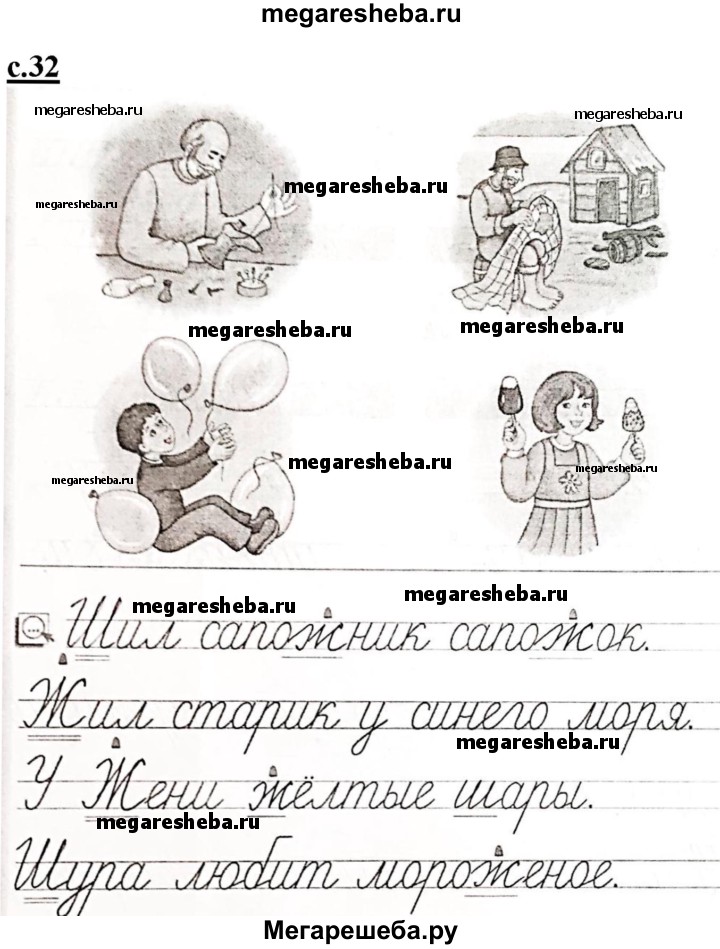 megaresheba.ru
с.32
megaresheba.ru
megaresheba.ru
megaresheba.ru
megaresheba.ru
megaresheba.ru
megaresheba.ru
megaresheba.ru
megaresheba.ru
megaresheba.ru
megaresheba.ru
megaresheba.ru
Шил сапожник сапожок.
Жил старик у синего моря.
megaresheba.ru
У Жени жёлтые шары.
megaresheba.ru
Шура любит мороженое.
Мегарешеба.ру